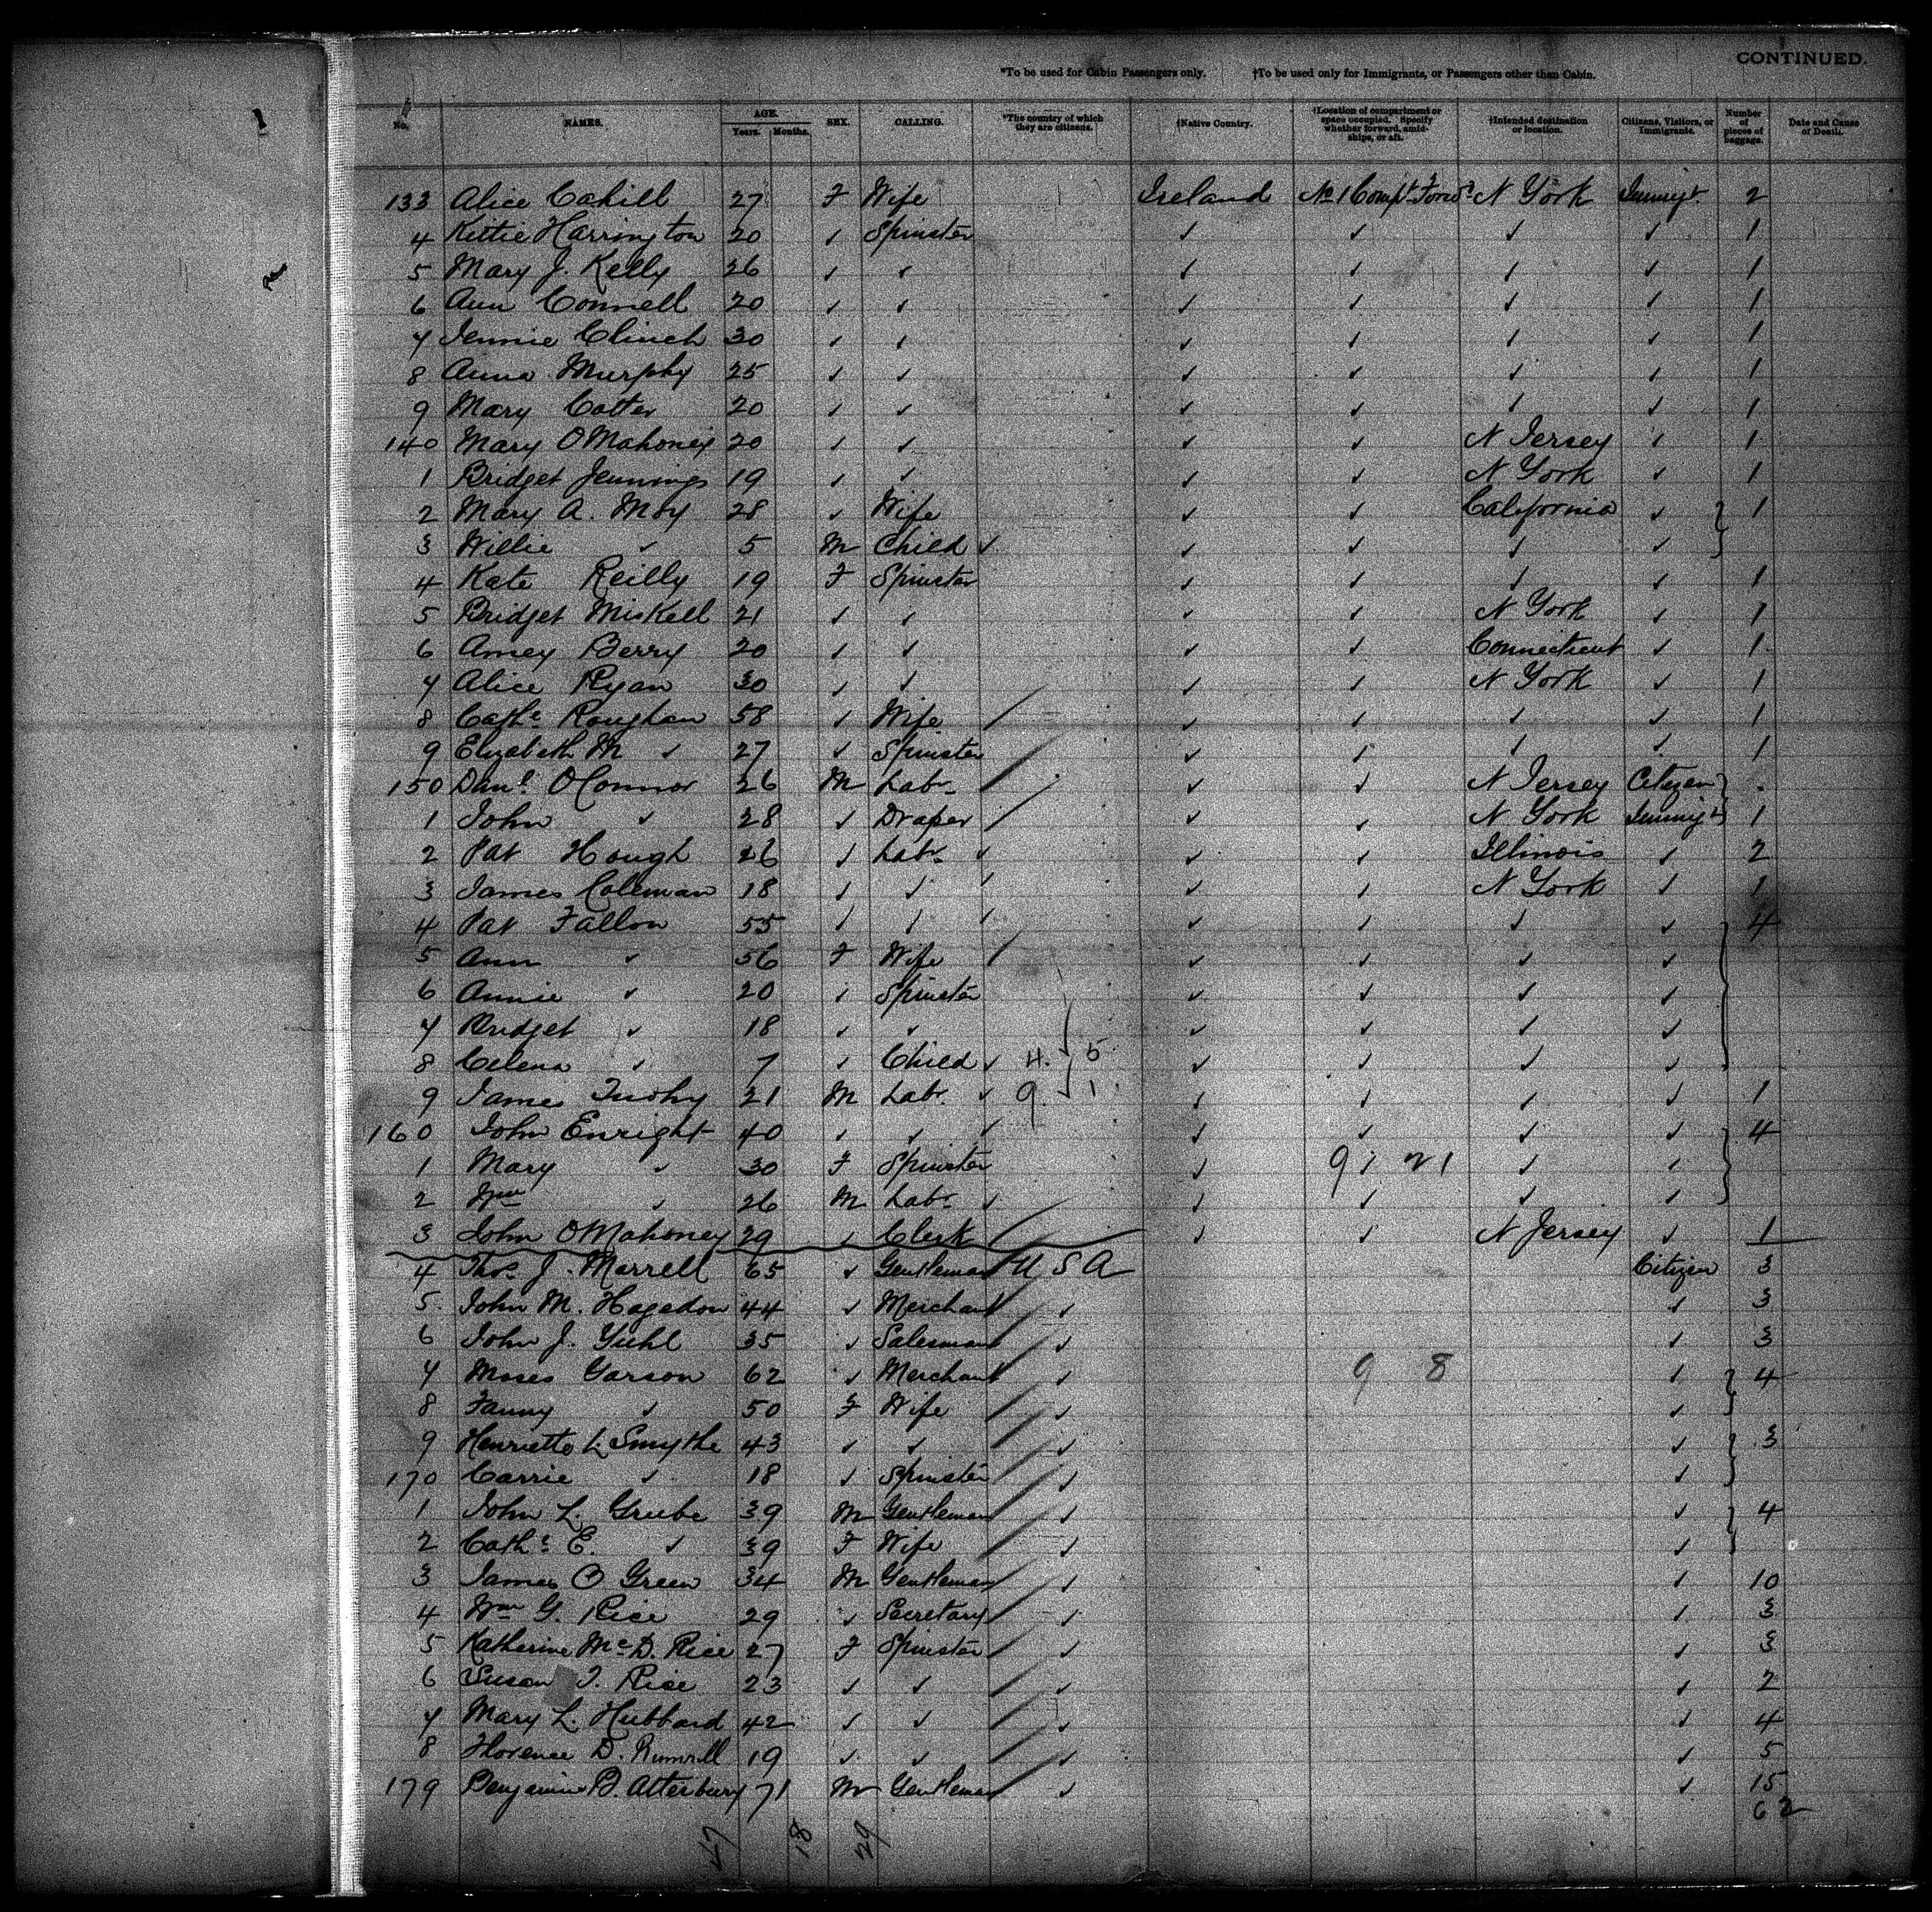 CONTINUED.
*To be used for Cabin Passengers only. †To be used only for Immigrants, or Passengers other than Cabin.
No. NAMES. AGE. Years. Months. SEX. CALLING. *The country of which they are citizens. †Native Country. †Location of compartment or space occupied. Specify whether forward, amidships, or aft. †Intended destination or location. Citizens, Visitors, or Immigrants. Number of pieces of baggage. Date and Cause of Death.
133 Alice Cahill 27 F Wife Ireland No 1 Compt Forwd N York Immigt. 2
4 Kittie Harrington 20 ✓ Spinster ✓ ✓ ✓ ✓ 1
5 Mary J. Kelly 26 ✓ ✓ ✓ ✓ ✓ ✓ 1
6 Ann Connell 20 ✓ ✓ ✓ ✓ ✓ ✓ 1
7 Jennie Clinch 30 ✓ ✓ ✓ ✓ ✓ ✓ 1
8 Anna Murphy 25 ✓ ✓ ✓ ✓ ✓ ✓ 1
9 Mary Cotter 20 ✓ ✓ ✓ ✓ ✓ ✓ 1
140 Mary O'Mahoney 20 ✓ ✓ ✓ ✓ N Jersey ✓ 1
1 Bridget Jennings 19 ✓ ✓ ✓ ✓ N York ✓ 1
2 Mary A. Moy 28 ✓ Wife ✓ ✓ California ✓ } 1
3 Willie ✓ 5 M Child ✓ ✓ ✓ ✓ ✓
4 Kate Reilly 19 F Spinster ✓ ✓ ✓ ✓ 1
5 Bridget Miskell 21 ✓ ✓ ✓ ✓ N York ✓ 1
6 Amey Berry 20 ✓ ✓ ✓ ✓ Connecticut ✓ 1
7 Alice Ryan 30 ✓ ✓ ✓ ✓ N York ✓ 1
8 Cathe Roughan 58 ✓ Wife / ✓ ✓ ✓ ✓ 1
9 Elizabeth M ✓ 27 ✓ Spinster ✓ ✓ ✓ ✓ 1
150 Danl O'Connor 26 M Labr / ✓ ✓ N Jersey Citizen } .
1 John ✓ 28 ✓ Draper / ✓ ✓ N York Immigt 1
2 Pat Hough 26 ✓ Labr ✓ ✓ ✓ Illinois ✓ 2
3 James Coleman 18 ✓ ✓ ✓ ✓ ✓ N York ✓ 1
4 Pat Fallon 55 ✓ ✓ ✓ ✓ ✓ ✓ ✓ } 4
5 Ann ✓ 56 F Wife / ✓ ✓ ✓ ✓
6 Annie ✓ 20 ✓ Spinster ✓ ✓ ✓ ✓
7 Bridget ✓ 18 ✓ ✓ ✓ ✓ ✓ ✓
8 Celena ✓ 7 ✓ Child ✓ 4. 5 ✓ ✓ ✓ ✓
9 James Tuohy 21 M Labr. ✓ 9 1 ✓ ✓ ✓ ✓ 1
160 John Enright 40 ✓ ✓ ✓ ✓ ✓ ✓ ✓ } 4
1 Mary ✓ 30 F Spinster ✓ 9 ✓ 21 ✓ ✓
2 Wm ✓ 26 M Labr ✓ ✓ ✓ ✓ ✓
3 John O'Mahoney 29 ✓ Clerk / ✓ ✓ N Jersey ✓ 1
4 Thos J. Morrell 65 ✓ Gentleman U S A Citizen 3
5 John M. Hagedon 44 ✓ Merchant ✓ ✓ 3
6 John J. Guhl 35 ✓ Salesman ✓ ✓ 3
7 Moses Garson 62 ✓ Merchant ✓ 9 8 ✓ } 4
8 Fanny ✓ 50 F Wife ✓ ✓
9 Henrietta L. Smythe 43 ✓ ✓ ✓ ✓ } 3
170 Carrie ✓ 18 ✓ Spinster ✓ ✓
1 John L. Grube 39 M Gentleman ✓ ✓ } 4
2 Cathe E. ✓ 39 F Wife ✓ ✓
3 James O Green 34 M Gentleman ✓ ✓ 10
4 Wm G. Rice 29 ✓ Secretary ✓ ✓ 3
5 Katherine McD. Rice 27 F Spinster ✓ ✓ 3
6 Susan T. Rice 23 ✓ ✓ ✓ ✓ 2
7 Mary L. Hubbard 42 ✓ ✓ ✓ ✓ 4
8 Florence D. Rumrill 19 ✓ ✓ ✓ ✓ 5
179 Benjamin B. Atterbury 71 M Gentleman ✓ ✓ 15
62
18 29